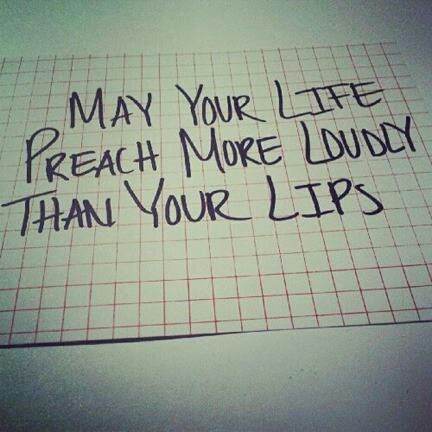 MAY YOUR LIFE
PREACH MORE LOUDLY
THAN YOUR LIPS